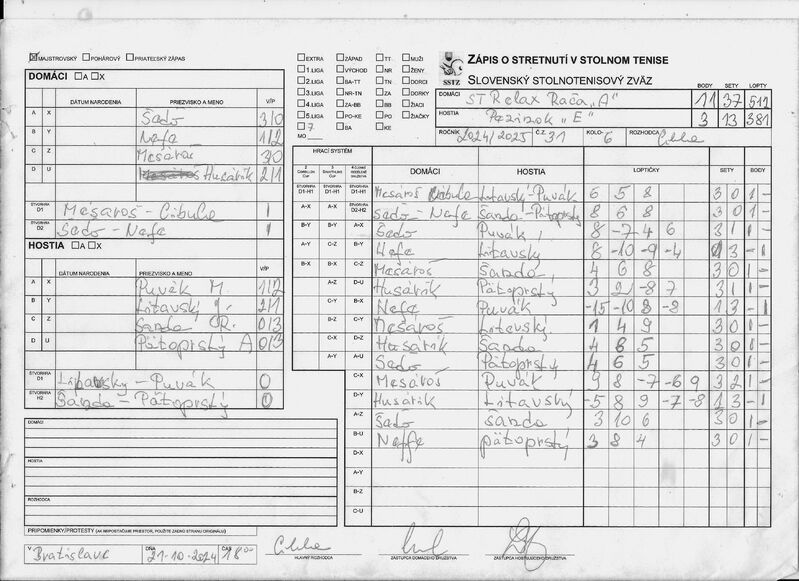 ☒MAJSTROVSKÝ ☐POHÁROVÝ ☐PRIATEĽSKÝ ZÁPAS
DOMÁCI ☐A ☐X
DÁTUM NARODENIA PRIEZVISKO A MENO V/P
A X Šado 3/0
B Y Neffe 1/2
C Z Mesároš 3/0
D U Husárik 2/1
ŠTVORHRA D1 Mesároš - Cibula 1
ŠTVORHRA D2 Šado - Neffe 1
HOSTIA ☐A ☐X
DÁTUM NARODENIA PRIEZVISKO A MENO V/P
A X Puvák M. 1/2
B Y Litavský 2/1
C Z Šanda R. 0/3
D U Pätoprstý A 0/3
ŠTVORHRA D1 Litavský - Puvák 0
ŠTVORHRA H2 Šanda - Pätoprstý 0
DOMÁCI
HOSTIA
ROZHODCA
PRIPOMIENKY/PROTESTY (AK NEPOSTAČUJE PRIESTOR, POUŽITE ZADNÚ STRANU ORIGINÁLU)
V Bratislave DŇA 21-10-2024 ČAS 18 00
HLAVNÝ ROZHODCA
ZÁSTUPCA DOMÁCEHO DRUŽSTVA
ZÁSTUPCA HOSŤUJÚCEHO DRUŽSTVA
☐EXTRA ☐ZÁPAD ☐TT ☐MUŽI
☐1.LIGA ☐VÝCHOD ☐NR ☐ŽENY
☐2.LIGA ☐BA-TT ☐TN ☐DORCI
☐3.LIGA ☐NR-TN ☐ZA ☐DORKY
☐4.LIGA ☐ZA-BB ☐BB ☐ŽIACI
☐5.LIGA ☐PO-KE ☐PO ☐ŽIAČKY
☐7 ☐BA ☐KE
MO
SSTZ
ZÁPIS O STRETNUTÍ V STOLNOM TENISE
SLOVENSKÝ STOLNOTENISOVÝ ZVÄZ
BODY SETY LOPTY
DOMÁCI ST Relax Rača „A" 11 37 512
HOSTIA Pezinok „E" 3 13 381
ROČNÍK 2024/2025 Č.Z. 31 KOLO 6 ROZHODCA
HRACÍ SYSTÉM
DOMÁCI HOSTIA LOPTIČKY SETY BODY
ŠTVORHRA D1-H1 ŠTVORHRA D1-H1 ŠTVORHRA D1-H1 Mesároš Cibula Litavský-Puvák 6 5 8 3 0 1 -
A-X A-X ŠTVORHRA D2-H2 Šado - Neffe Šanda-Pätoprstý 8 6 8 3 0 1 -
B-Y B-Y A-X Šado Puvák 8 -7 4 6 3 1 1 -
A-Y C-Z B-Y Neffe Litavský 8 -10 -9 -4 1 3 - 1
B-X B-X C-Z Mesároš Šanda 4 6 8 3 0 1 -
A-Z D-U Husárik Pätoprstý 3 2 1 -8 7 3 1 1 -
C-Y B-X Neffe Puvák -15 -10 8 -8 1 3 - 1
B-Z C-Y Mesároš Litavský 1 4 9 3 0 1 -
C-X D-Z Husárik Šanda 4 8 5 3 0 1 -
A-Y A-U Šado Pätoprstý 4 6 5 3 0 1 -
C-X Mesároš Puvák 9 8 -7 -6 9 3 2 1 -
D-Y Husárik Litavský -5 8 9 -7 -8 1 3 - 1
A-Z Šado Šanda 3 10 6 3 0 1 -
B-U Neffe Pätoprstý 3 8 4 3 0 1 -
D-X
A-Y
B-Z
C-U